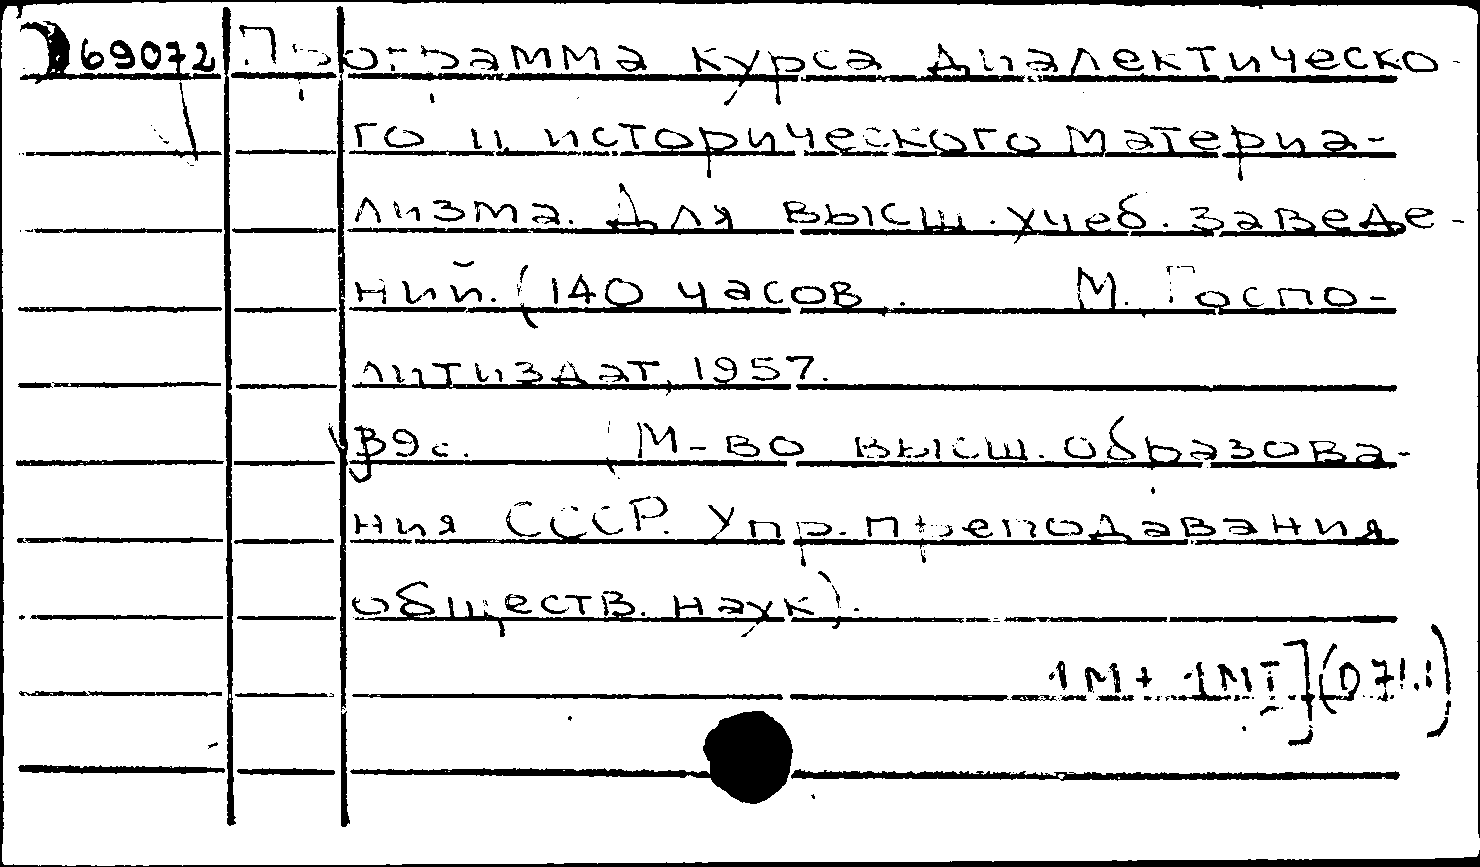 69072 Программа курса диалектическо-
го и исторического материа-
лизма. Для высш. учеб. заведе-
ний. (140 часов. М. Госпо-
литиздат, 1957.
39с. (М-во высш. образова-
ния СССР. Упр. преподавания
обществ. наук).
1М+ 1МI] (071.1)